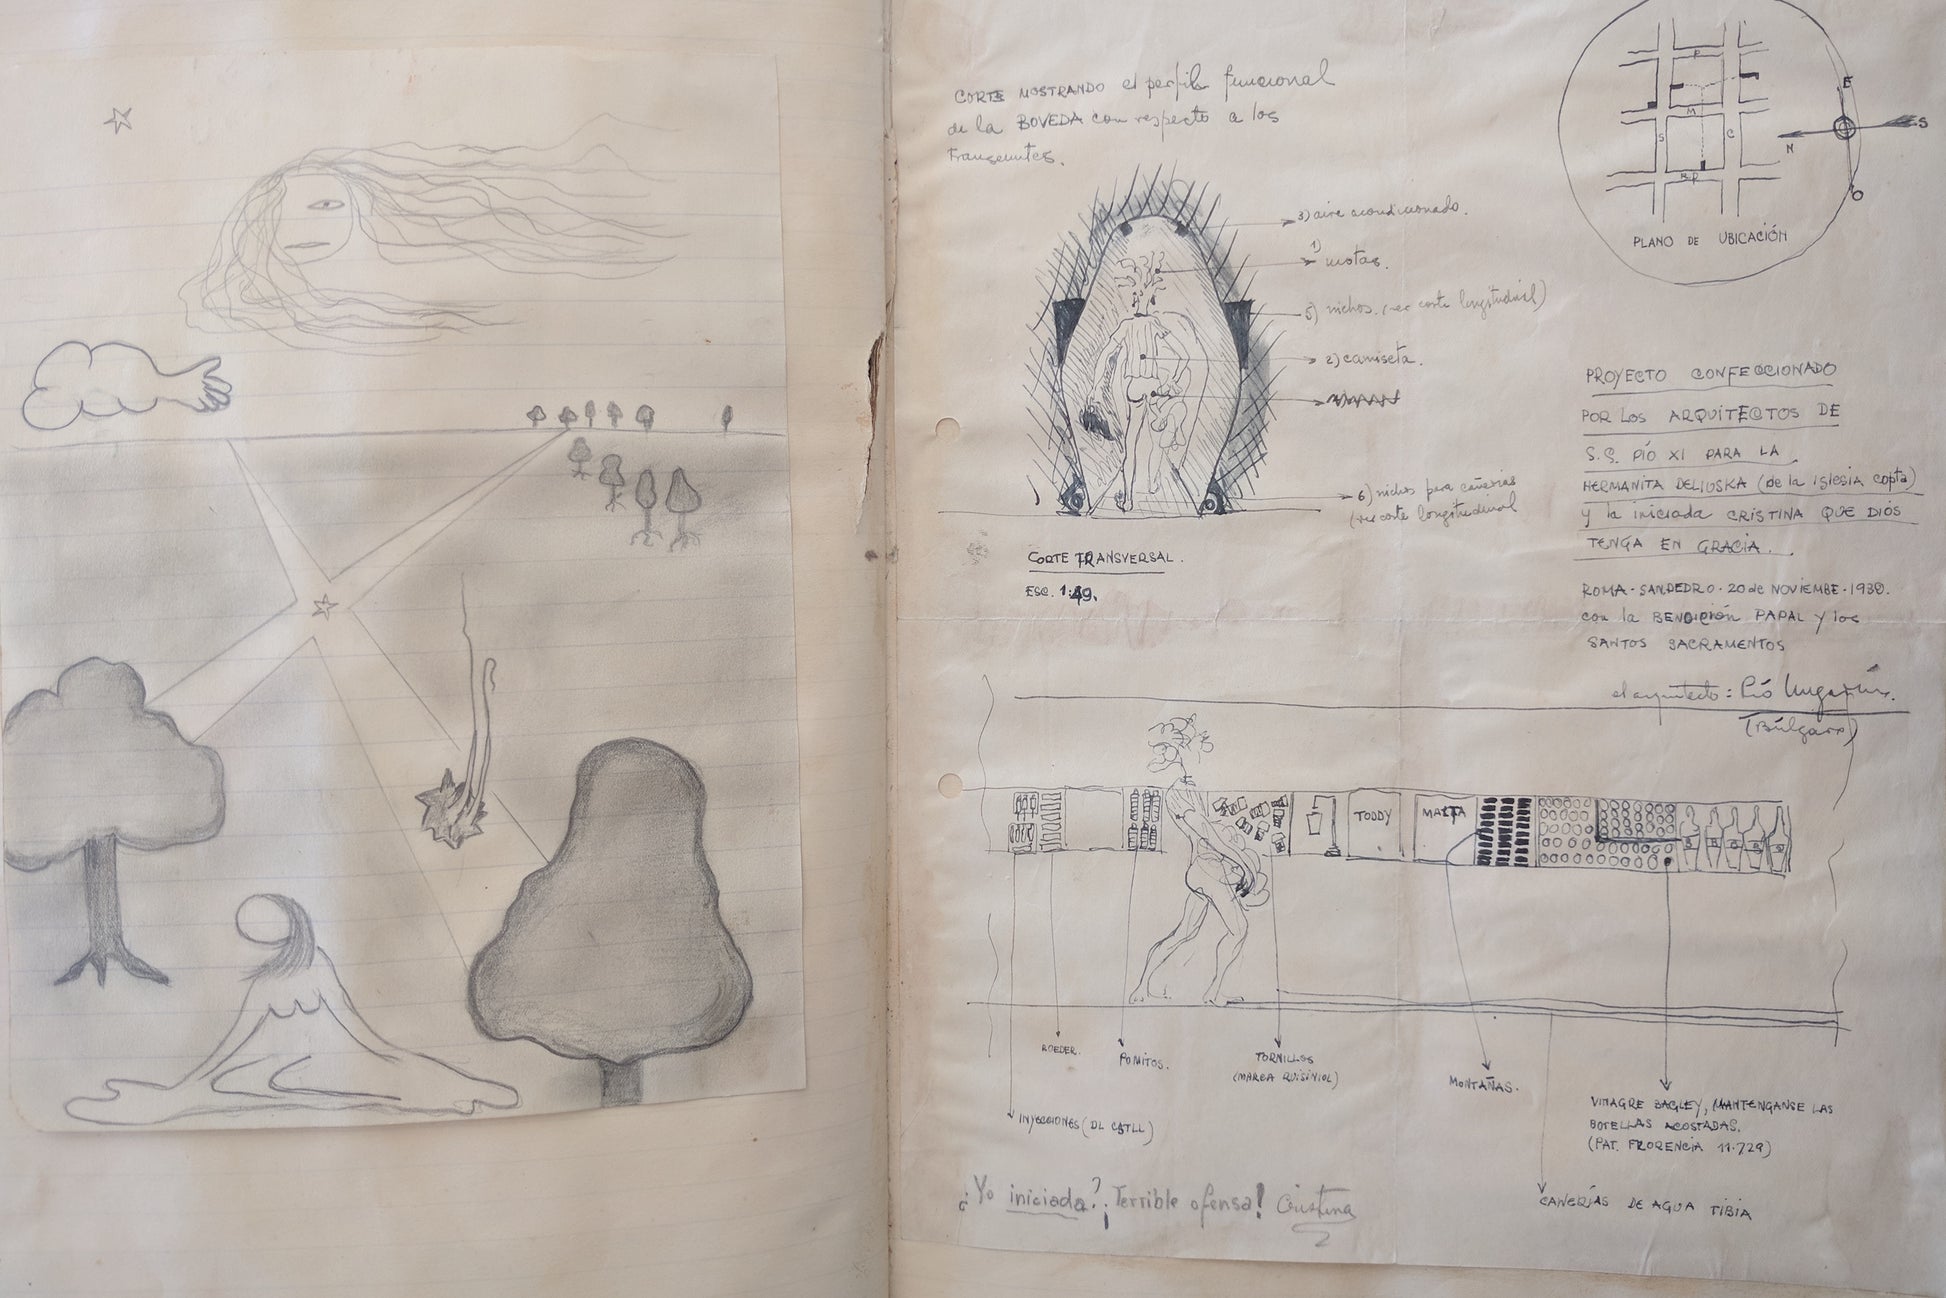 CORTE MOSTRANDO el perfil funcional
de la BOVEDA con respecto a los
transeuntes.
3) aire acondicionado.
1) motas.
5) nichos. (ver corte longitudinal)
2) camiseta.
6) nichos para cañerias
(ver corte longitudinal
CORTE TRANSVERSAL.
ESC. 1:49.
E
S
N
O
P
M
S
C
B.P.
PLANO DE UBICACIÓN
PROYECTO CONFECCIONADO
POR LOS ARQUITECTOS DE
S.S. PÍO XI PARA LA
HERMANITA DELIUSKA (de la iglesia copta)
y la iniciada CRISTINA QUE DIOS
TENGA EN GRACIA.
ROMA · SAN PEDRO · 20 de NOVIEMBE · 1939.
con la BENDICIÓN PAPAL y los
SANTOS SACRAMENTOS
el arquitecto: Pió
(Búlgaro)
TODDY
MALTA
ROEDER.
POMITOS.
TORNILLOS
(MARCA QUISINIOL)
MONTAÑAS.
INYECCIONES (DL CSTLL)
VINAGRE BAGLEY, MANTENGANSE LAS
BOTELLAS ACOSTADAS.
(PAT. FLORENCIA 11.729)
CAÑERÍAS DE AGUA TIBIA
¿Yo iniciada? ¡Terrible ofensa! Cristina